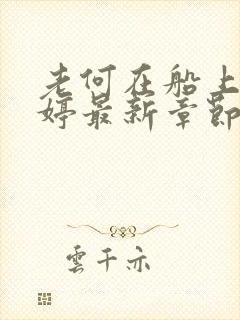 老何在船上
婷最新章節
雲千亦